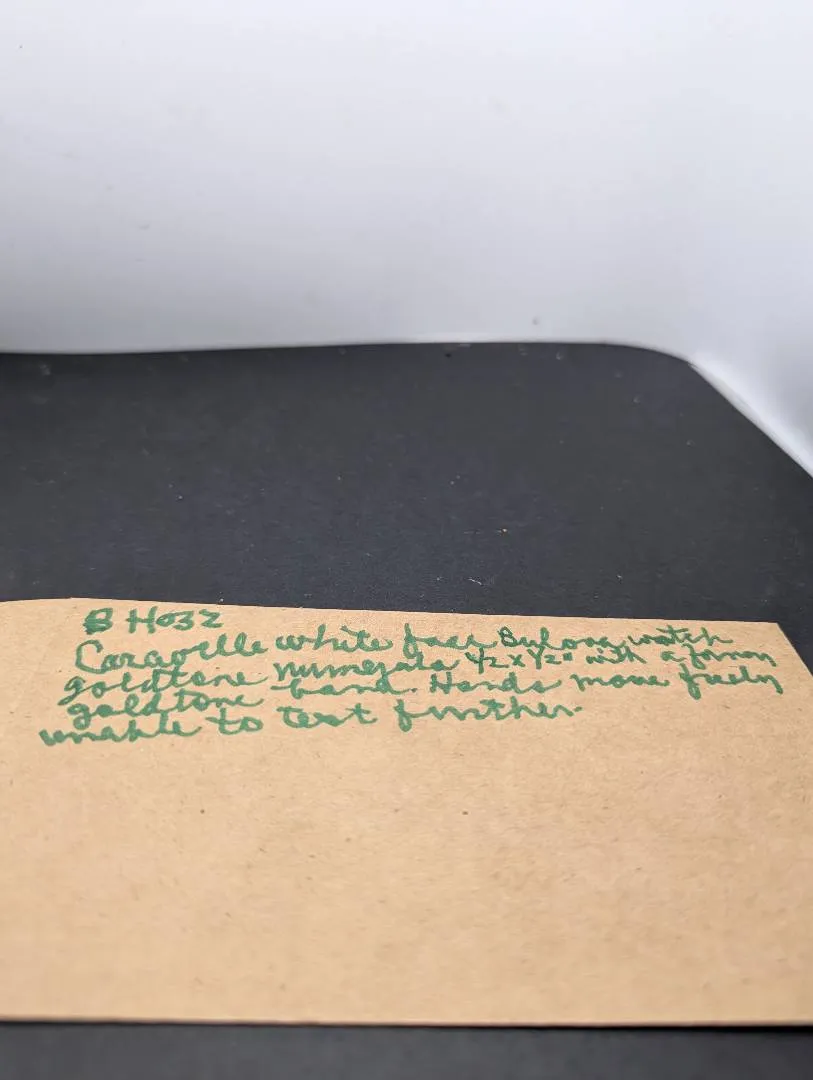 B H032
Caravelle white face Bulova watch
goldtone numerals 1/2 x 1/2" with a
goldtone band. Hands move freely
unable to test further.